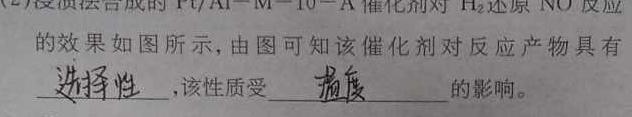 (2)浸渍法合成的 Pt/Al-M-10-A 催化剂对 H₂还原 NO 反应
的效果如图所示,由图可知该催化剂对反应产物具有
选择性,该性质受温度的影响。